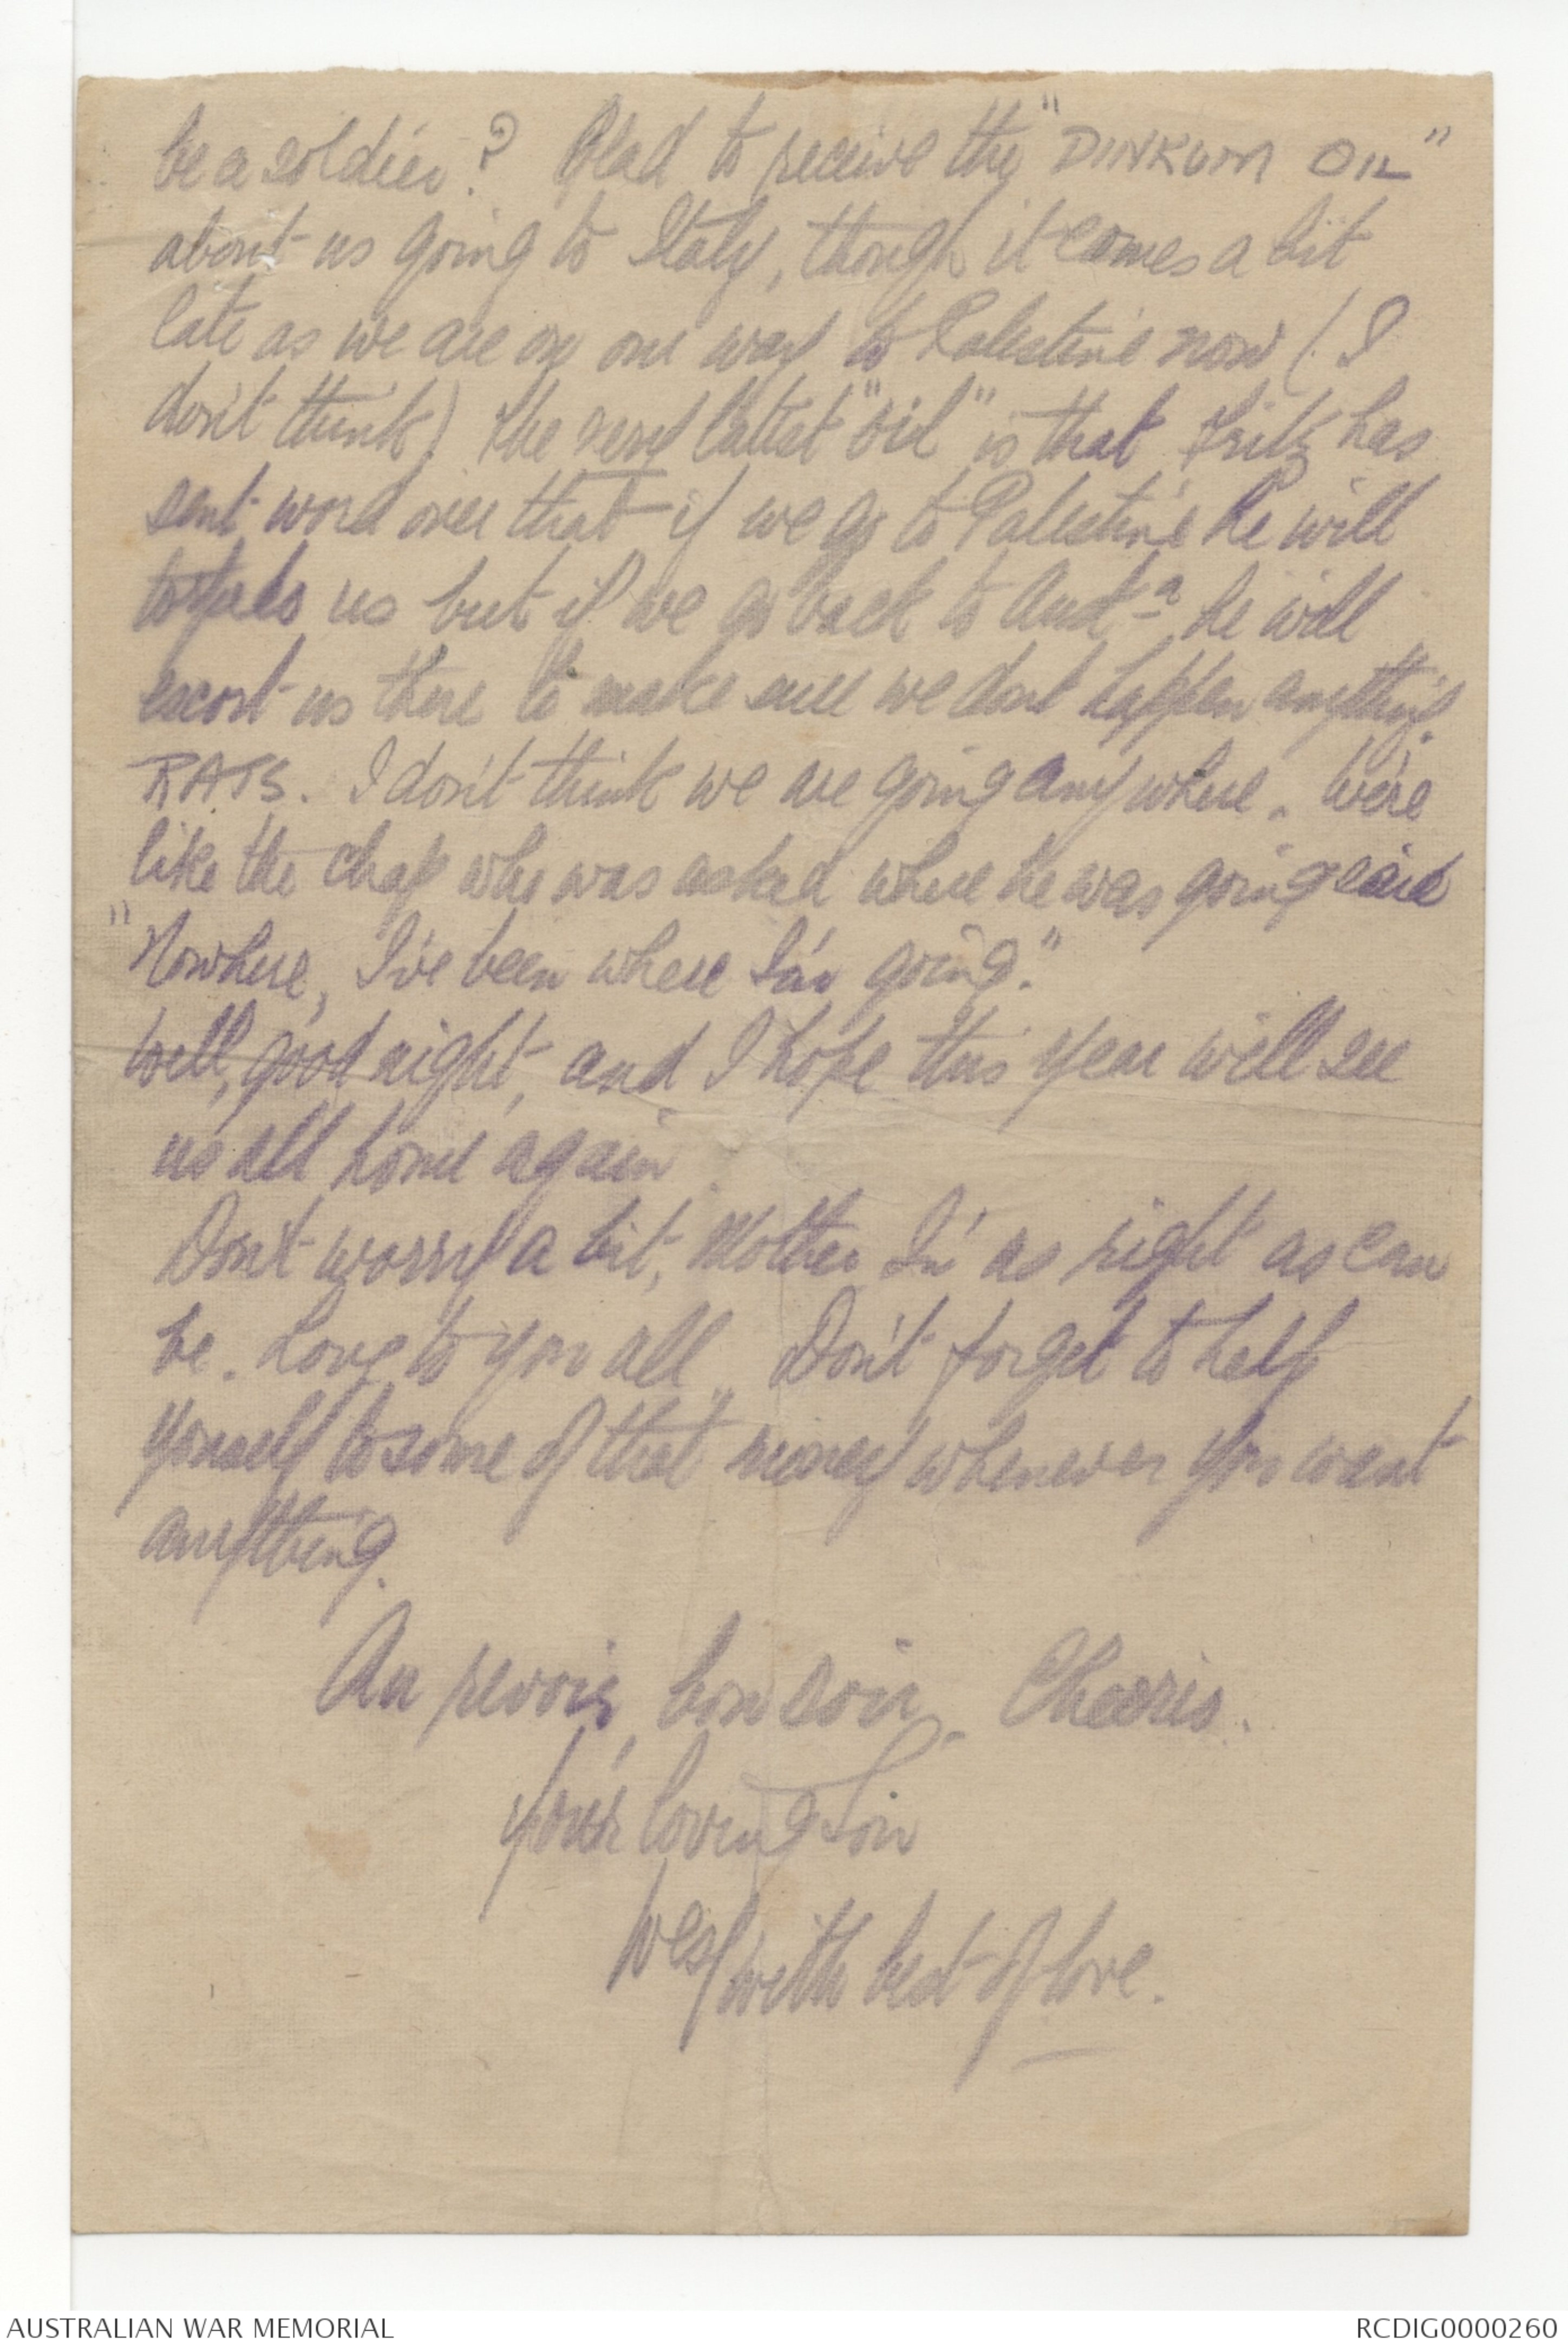 be a soldier? Glad to receive the "DINKUM OIL"
about us going to Italy, though it comes a bit
late as we are on our way to Palestine now (I
don't think) The very lattest "oil" is that Fritz has
sent word over that if we go to Palestine he will
us but if we go back to Aust-a he will
escort us there to make sure we dont happen anything.
RATS. I don't think we are going anywhere. We're
like the chap who was asked where he was going said
"Nowhere, I've been where I'm going."
Well, good night, and I hope this year will see
us all home again
Don't worry a bit, Mother I'm as right as can
be. Love to you all. Don't forget to help
yourself to some of that money whenever you want
anything.
Au revoir, bon soir. Cheerio.
Your loving Son
Wes with best of love.
AUSTRALIAN WAR MEMORIAL
RCDIG0000260